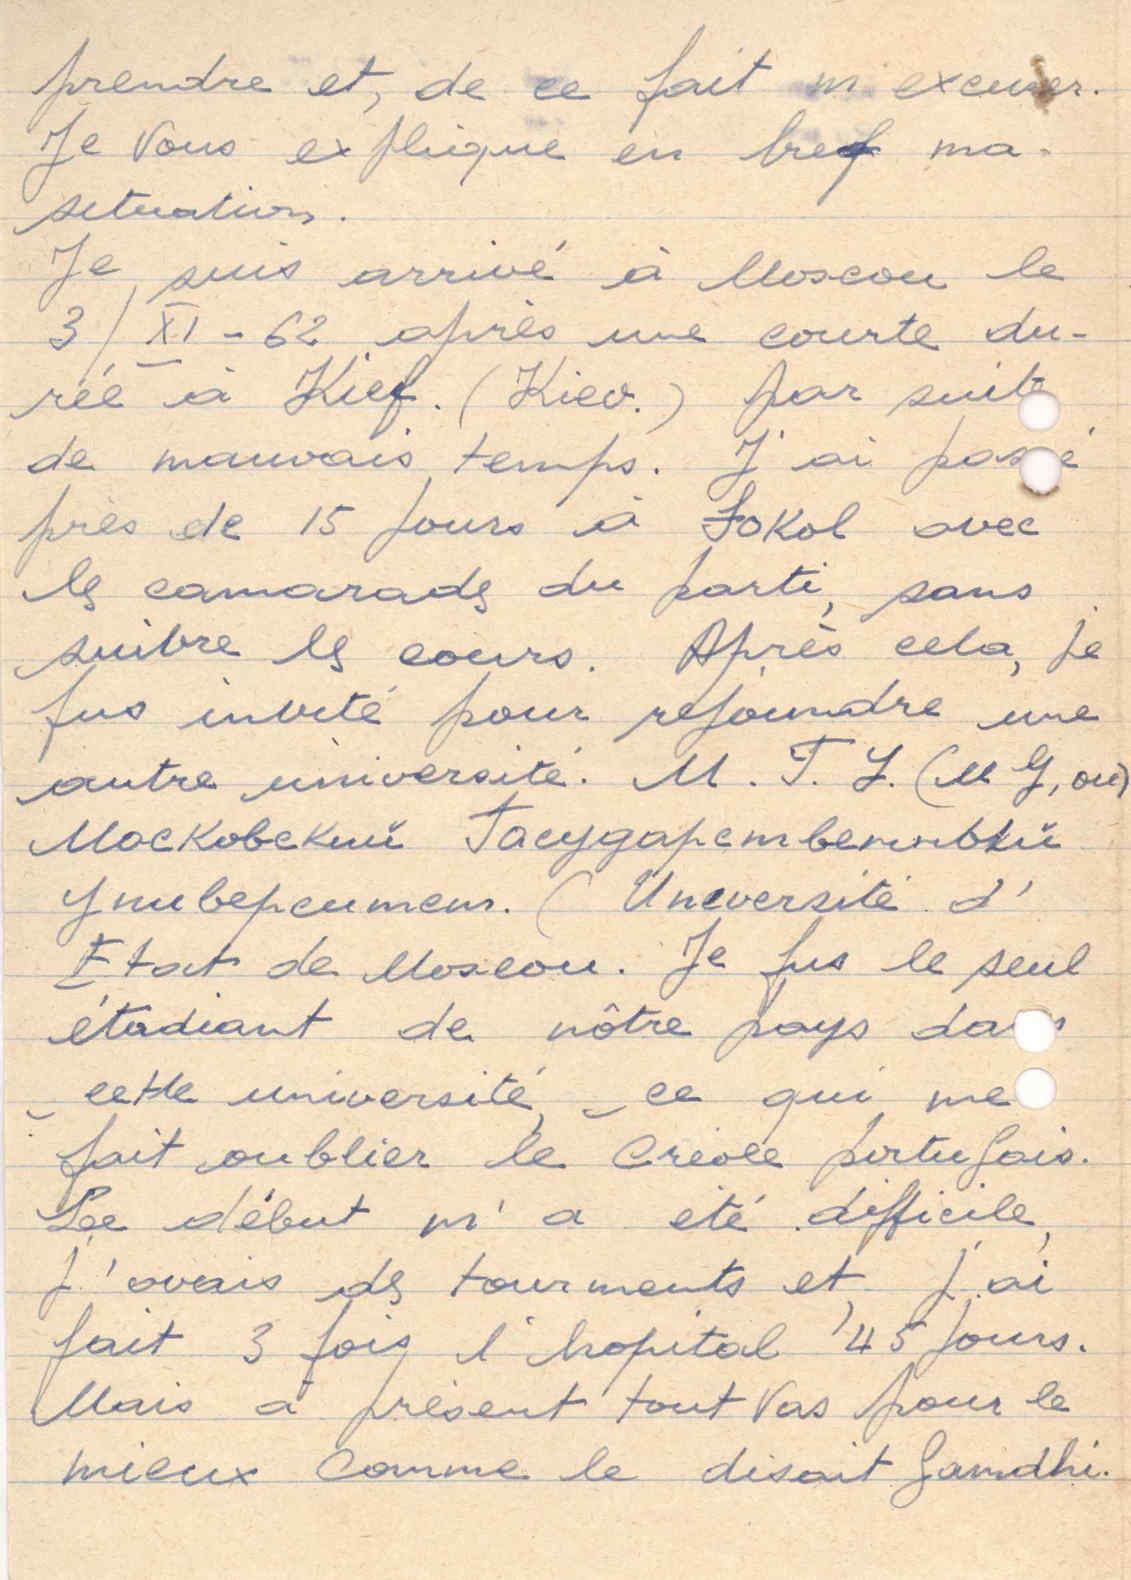 prendre et, de ce fait m'excuser.
Je vous explique en bref ma
situation.
Je suis arrivé à Moscou le
3/XI-62 après une courte du-
rée à Kief. (Kiev.) par suite
de mauvais temps. J'ai passé
près de 15 jours à Sokol avec
les camarades du parti, sans
suibre les cours. Après cela, je
fus invité pour rejoundre une
autre université. M. Г. У. (M G, ou)
Московский Гасударственнвкий
Университет. (Université d'
Etat de Moscou. Je fus le seul
étudiant de nôtre pays dans
cette université, - ce qui me
fait oublier le Créole portugais.
Le début m'a été difficile,
j'avais des tourments et, j'ai
fait 3 fois l'hopital, 45 jours.
Mais à présent tout vas pour le
mieux comme le disait Gamdhi.